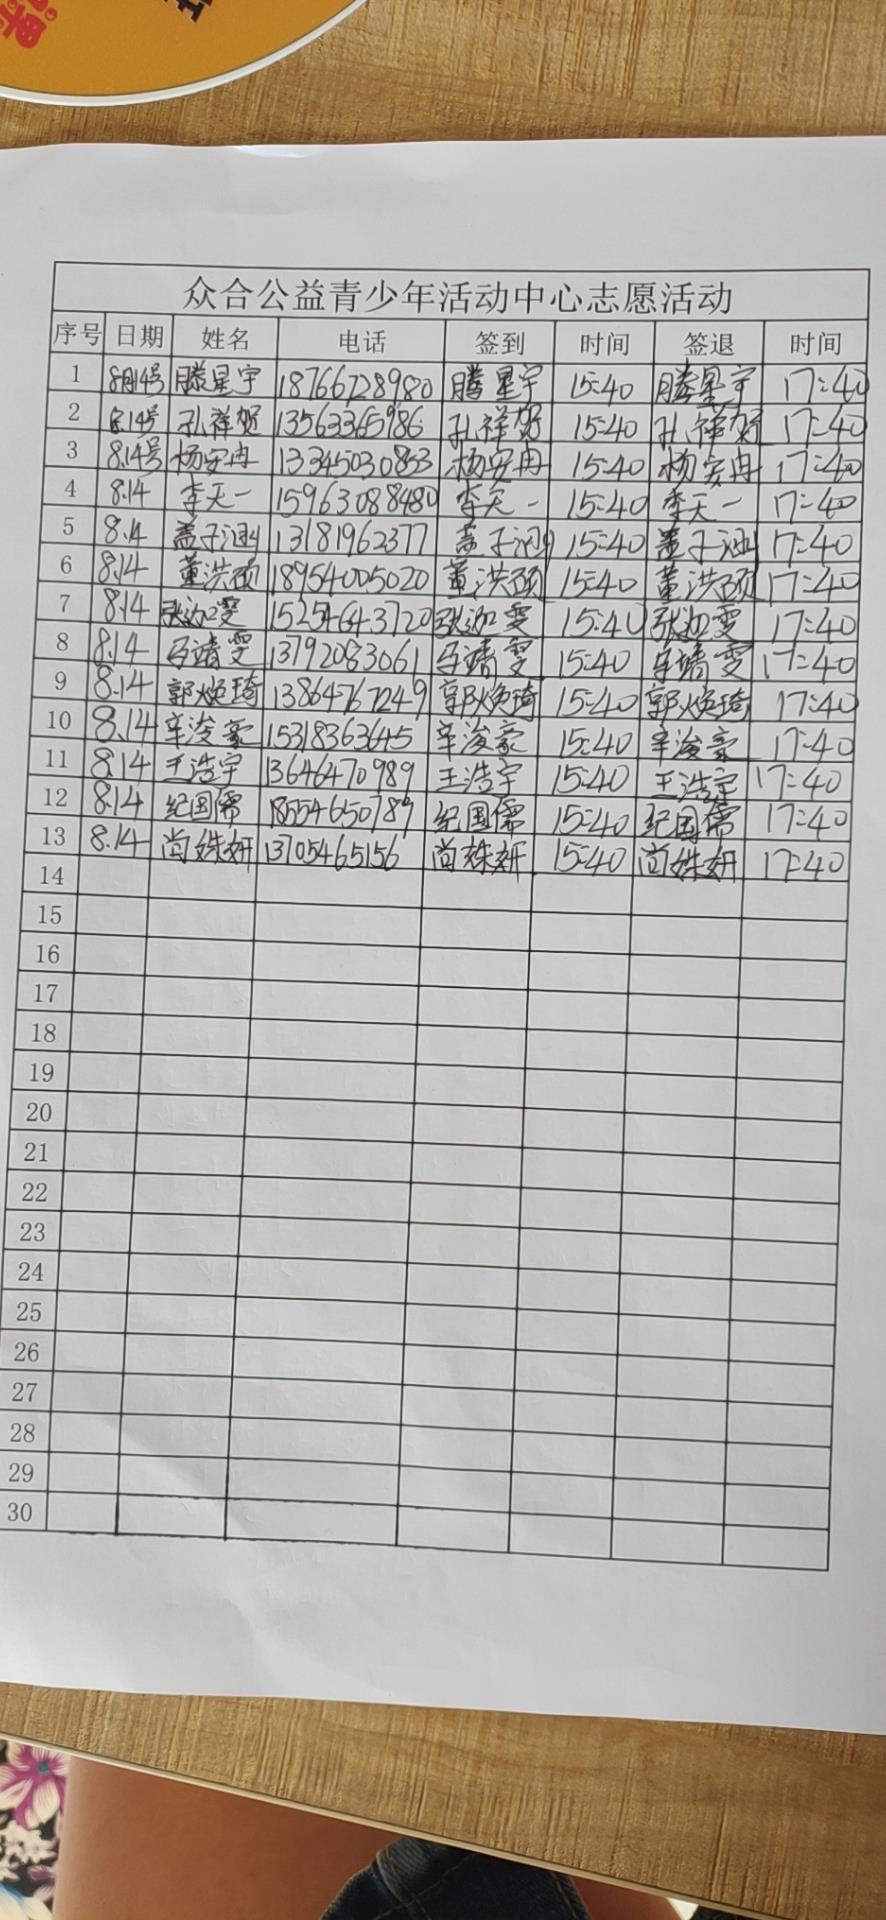 众合公益青少年活动中心志愿活动
序号 日期 姓名 电话 签到 时间 签退 时间
1 8月14号 滕星宇 18766728980 滕星宇 15:40 滕星宇 17:40
2 8.14号 孔祥贺 13563365986 孔祥贺 15:40 孔祥贺 17:40
3 8.14号 杨安冉 13345030853 杨安冉 15:40 杨安冉 17:40
4 8.14 李天一 15963088480 李天一 15:40 李天一 17:40
5 8.14 盖子涵 13181962377 盖子涵 15:40 盖子涵 17:40
6 8.14 董洪硕 18954005020 董洪硕 15:40 董洪硕 17:40
7 8.14 张迦雯 15254643720 张迦雯 15:40 张迦雯 17:40
8 8.14 靖雯 13792083061 靖雯 15:40 靖雯 17:40
9 8.14 郭焕琦 13864767249 郭焕琦 15:40 郭焕琦 17:40
10 8.14 辛浚豪 15318363645 辛浚豪 15:40 辛浚豪 17:40
11 8.14 王浩宇 13646470989 王浩宇 15:40 王浩宇 17:40
12 8.14 纪国儒 18554650789 纪国儒 15:40 纪国儒 17:40
13 8.14 尚姝妍 13705465156 尚姝妍 15:40 尚姝妍 17:40
14
15
16
17
18
19
20
21
22
23
24
25
26
27
28
29
30